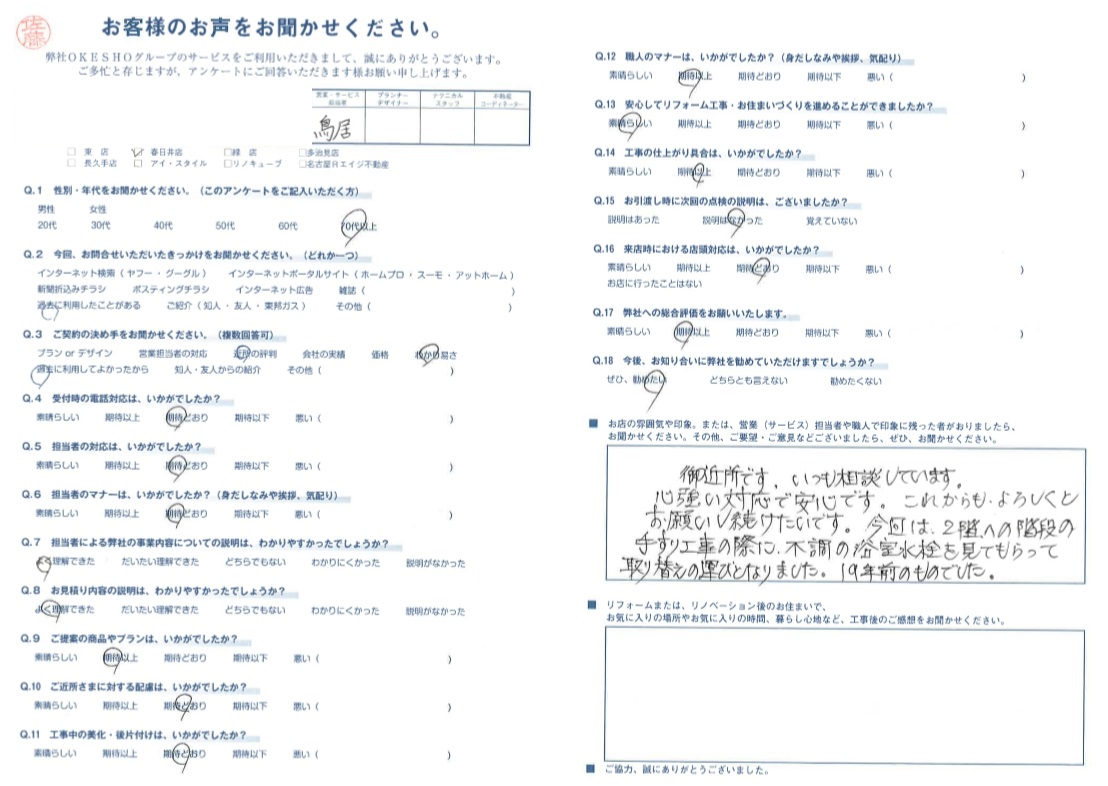 佐藤
お客様のお声をお聞かせください。
弊社OKESHOグループのサービスをご利用いただきまして、誠にありがとうございます。
ご多忙と存じますが、アンケートにご回答いただきます様お願い申し上げます。
営業・サービス担当者 プランナーデザイナー テクニカルスタッフ 不動産コーディネーター
鳥居
東 店 春日井店 緑 店 多治見店
長久手店 アイ・スタイル リノキューブ 名古屋Rエイジ不動産
Q.1 性別・年代をお聞かせください。（このアンケートをご記入いただく方）
男性 女性
20代 30代 40代 50代 60代 70代以上
Q.2 今回、お問合せいただいたきっかけをお聞かせください。（どれか一つ）
インターネット検索（ ヤフー ・ グーグル ） インターネットポータルサイト（ ホームプロ ・ スーモ ・ アットホーム ）
新聞折込みチラシ ポスティングチラシ インターネット広告 雑誌（ ）
過去に利用したことがある ご紹介（ 知人 ・ 友人 ・ 東邦ガス ） その他（ ）
Q.3 ご契約の決め手をお聞かせください。（複数回答可）
プラン or デザイン 営業担当者の対応 近所の評判 会社の実績 価格 わかり易さ
過去に利用してよかったから 知人・友人からの紹介 その他（ ）
Q.4 受付時の電話対応は、いかがでしたか？
素晴らしい 期待以上 期待どおり 期待以下 悪い（ ）
Q.5 担当者の対応は、いかがでしたか？
素晴らしい 期待以上 期待どおり 期待以下 悪い（ ）
Q.6 担当者のマナーは、いかがでしたか？（身だしなみや挨拶、気配り）
素晴らしい 期待以上 期待どおり 期待以下 悪い（ ）
Q.7 担当者による弊社の事業内容についての説明は、わかりやすかったでしょうか？
よく理解できた だいたい理解できた どちらでもない わかりにくかった 説明がなかった
Q.8 お見積り内容の説明は、わかりやすかったでしょうか？
よく理解できた だいたい理解できた どちらでもない わかりにくかった 説明がなかった
Q.9 ご提案の商品やプランは、いかがでしたか？
素晴らしい 期待以上 期待どおり 期待以下 悪い（ ）
Q.10 ご近所さまに対する配慮は、いかがでしたか？
素晴らしい 期待以上 期待どおり 期待以下 悪い（ ）
Q.11 工事中の美化・後片付けは、いかがでしたか？
素晴らしい 期待以上 期待どおり 期待以下 悪い（ ）
Q.12 職人のマナーは、いかがでしたか？（身だしなみや挨拶、気配り）
素晴らしい 期待以上 期待どおり 期待以下 悪い（ ）
Q.13 安心してリフォーム工事・お住まいづくりを進めることができましたか？
素晴らしい 期待以上 期待どおり 期待以下 悪い（ ）
Q.14 工事の仕上がり具合は、いかがでしたか？
素晴らしい 期待以上 期待どおり 期待以下 悪い（ ）
Q.15 お引渡し時に次回の点検の説明は、ございましたか？
説明はあった 説明はなかった 覚えていない
Q.16 来店時における店頭対応は、いかがでしたか？
素晴らしい 期待以上 期待どおり 期待以下 悪い（ ）
お店に行ったことはない
Q.17 弊社への総合評価をお願いいたします。
素晴らしい 期待以上 期待どおり 期待以下 悪い（ ）
Q.18 今後、お知り合いに弊社を勧めていただけますでしょうか？
ぜひ、勧めたい どちらとも言えない 勧めたくない
■ お店の雰囲気や印象。または、営業（サービス）担当者や職人で印象に残った者がおりましたら、
お聞かせください。その他、ご要望・ご意見などございましたら、ぜひ、お聞かせください。
御近所です。いつも相談しています。
心強い対応で安心です。これからも、よろしくと
お願いし続けたいです。今回は、2階への階段の
手すり工事の際に、不調の浴室水栓を見てもらって
取り替えの運びとなりました。19年前のものでした。
■ リフォームまたは、リノベーション後のお住まいで、
お気に入りの場所やお気に入りの時間、暮らし心地など、工事後のご感想をお聞かせください。
■ ご協力、誠にありがとうございました。